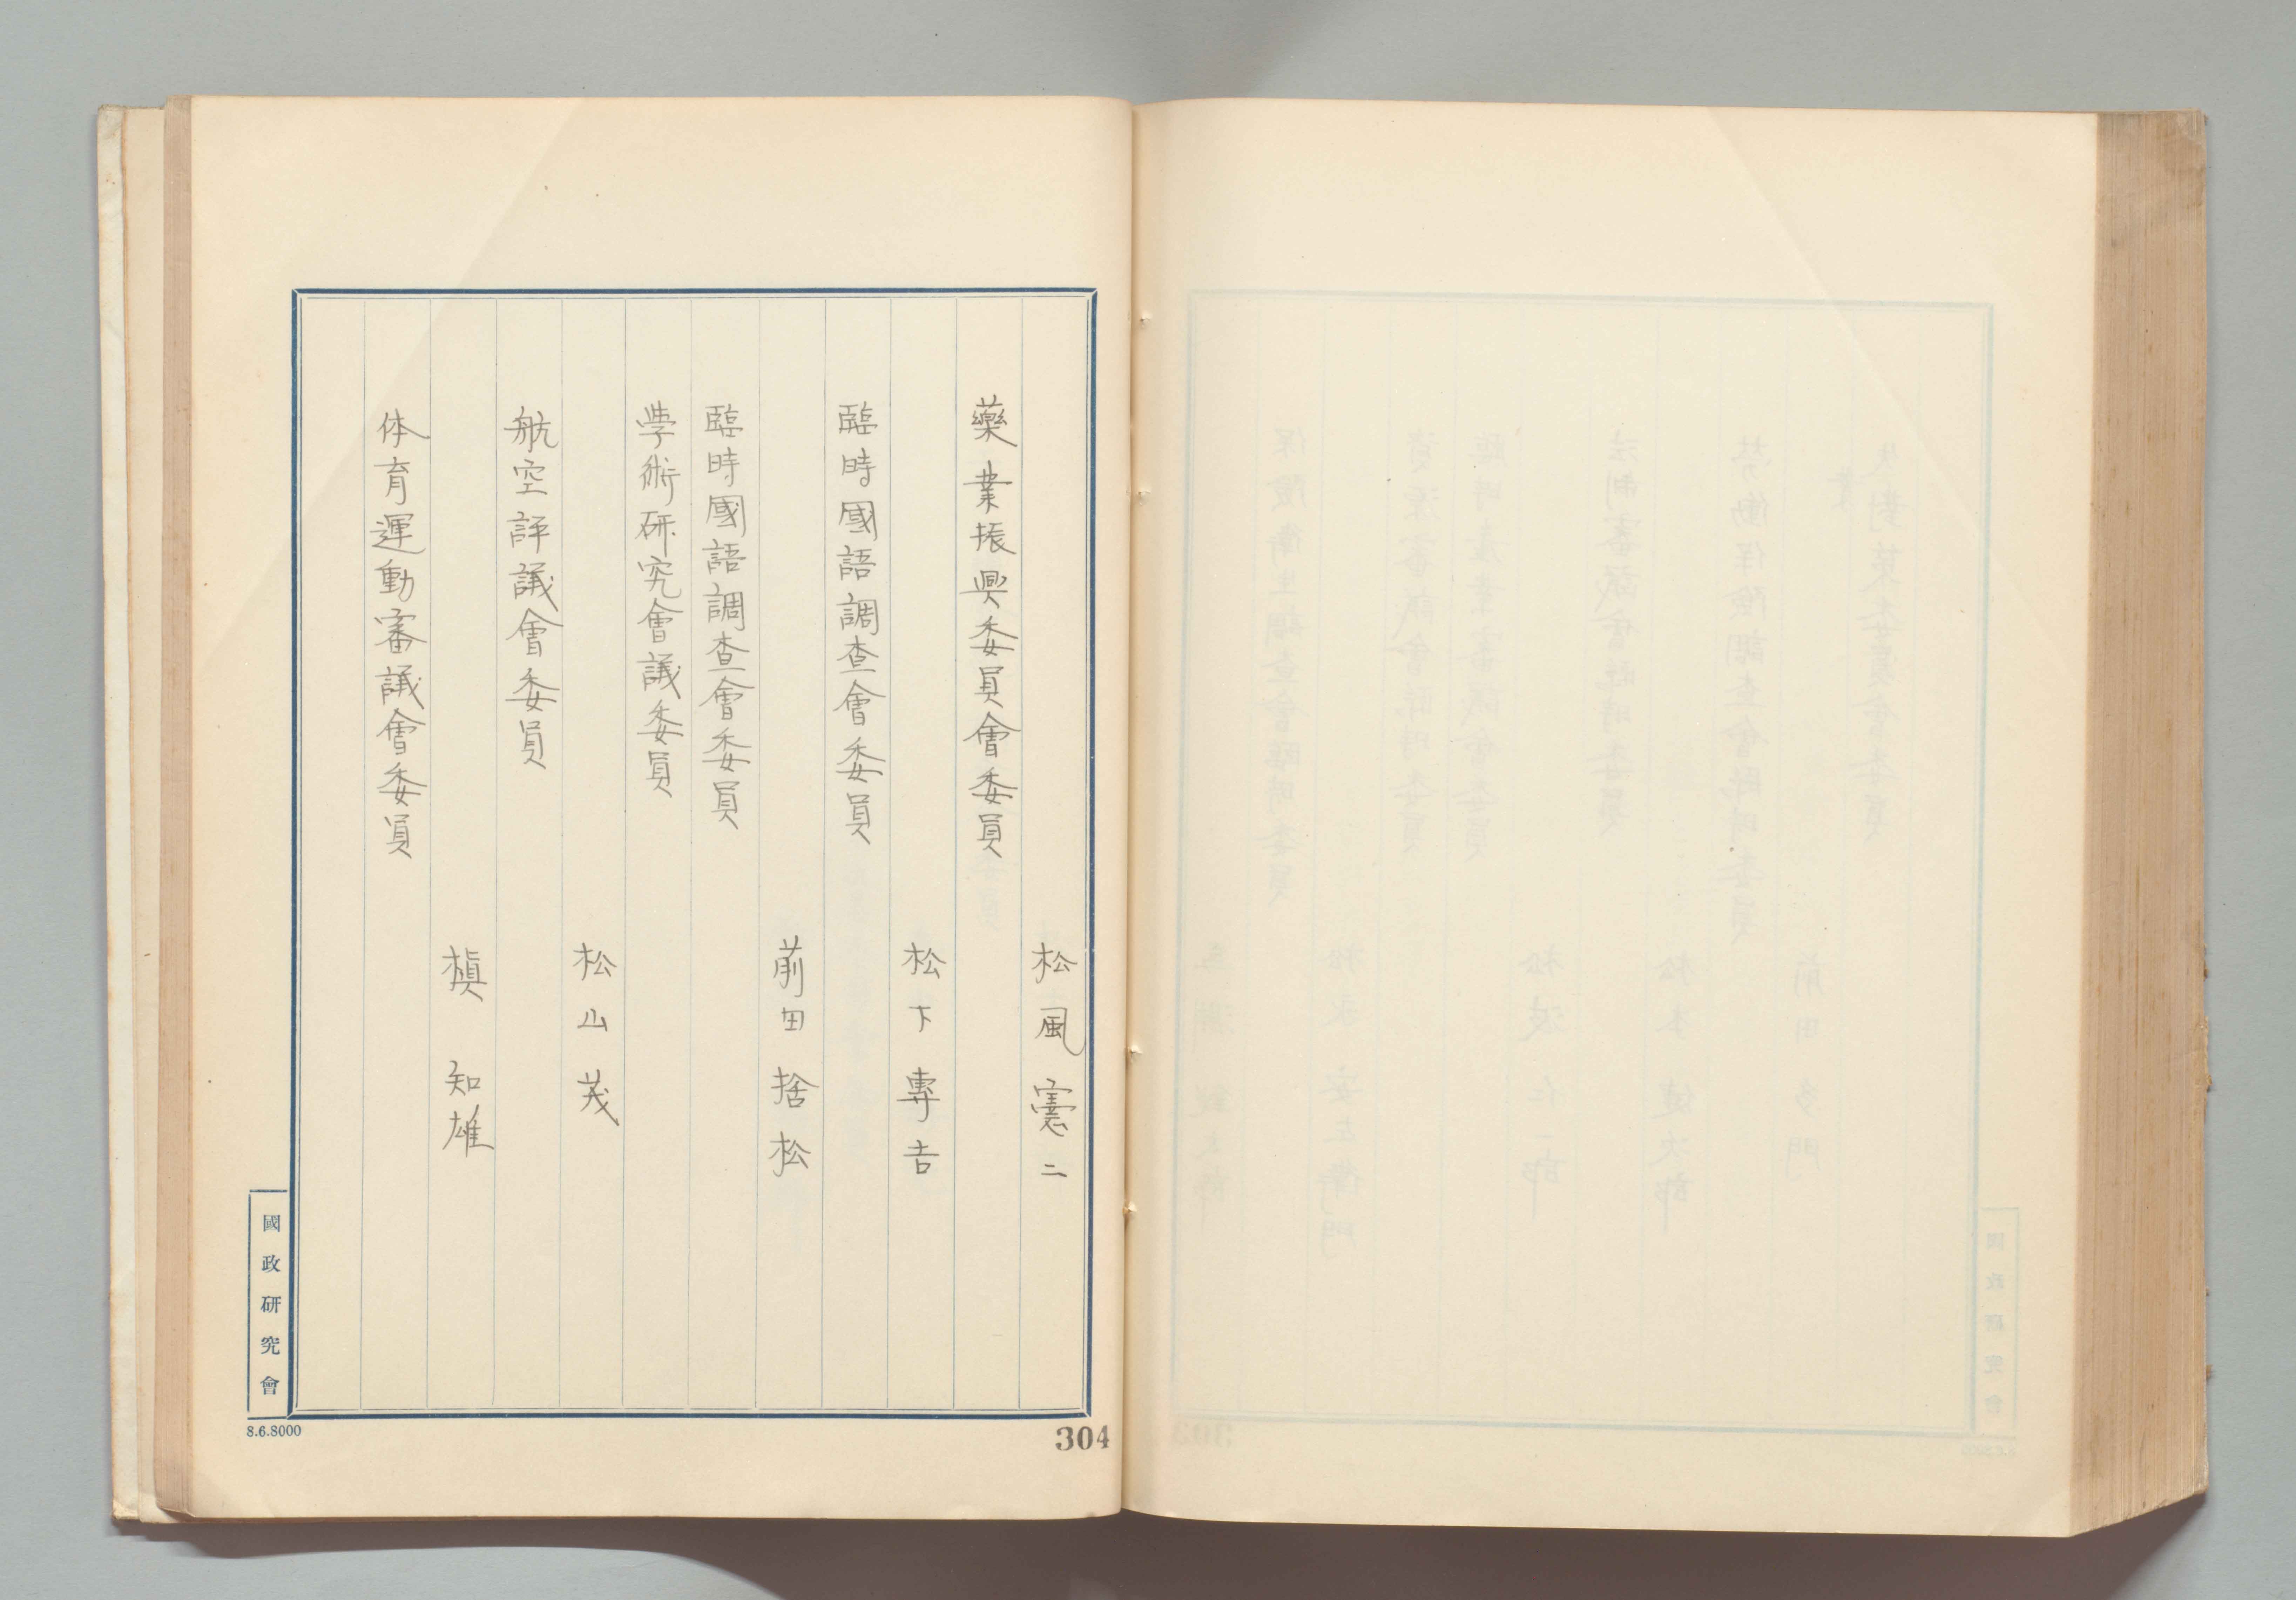 松風憲二
藥業振興委員會委員
松下專吉
臨時國語調査會委員
前田捨松
臨時國語調査會委員
学術研究會議委員
松山茂
航空評議會委員
槙知雄
体育運動審議會委員
國政研究會
8.6.8000
304